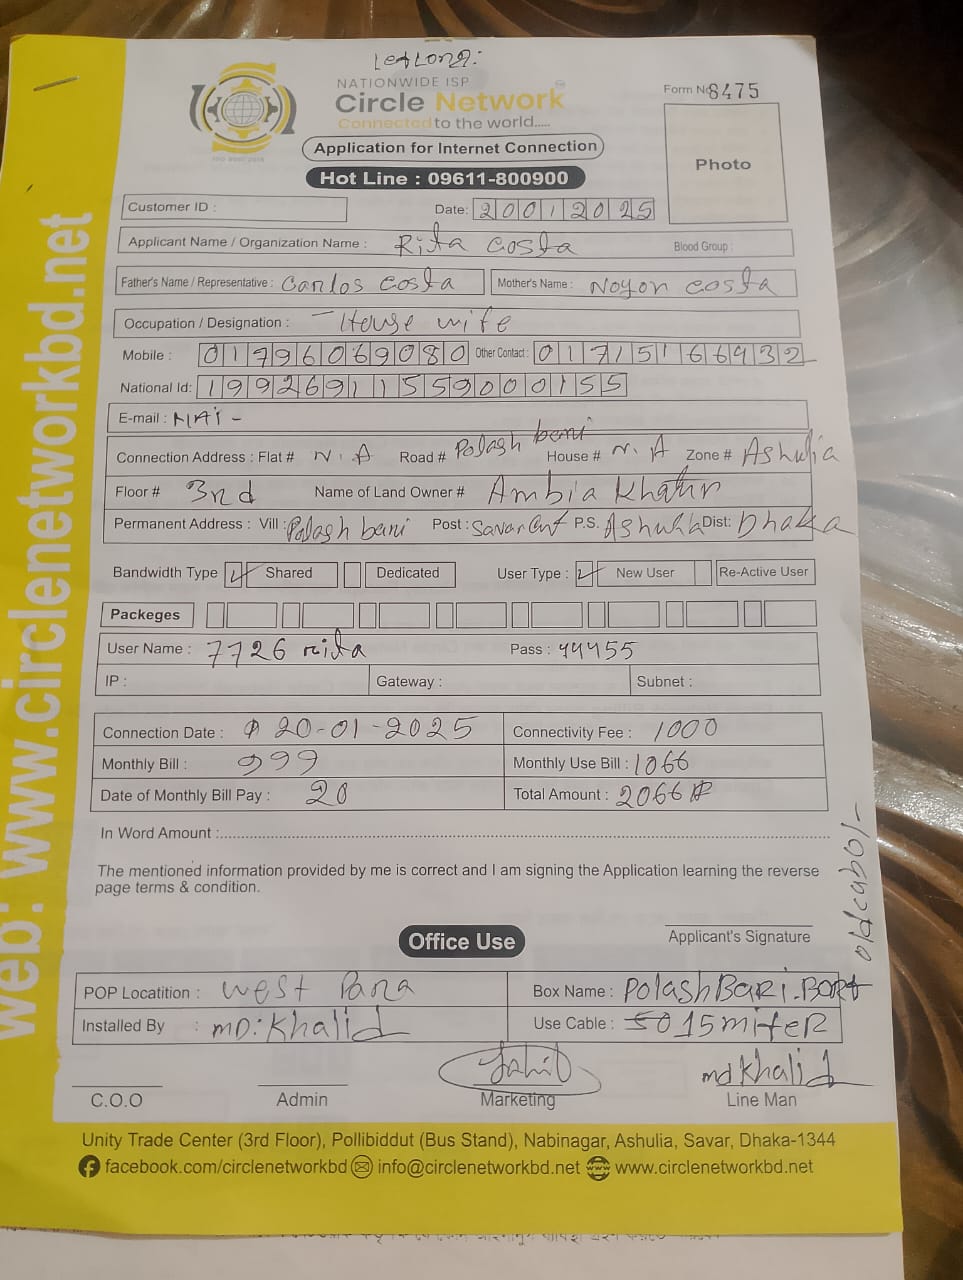 NATIONWIDE ISP
Circle Network
Connected to the world.....
Form No 8475
Application for Internet Connection
Photo
Hot Line : 09611-800900
Customer ID :
Date: 20012025
Applicant Name / Organization Name : Rita Costa Blood Group :
Father's Name / Representative : Carlos Costa Mother's Name : Noyon costa
Occupation / Designation : House wife
Mobile : 01796069080 Other Contact : 01715166932
National Id: 19926911559000155
E-mail :
Connection Address : Flat # N.A Road # Polash bari House # N.A Zone # Ashulia
Floor # 3rd Name of Land Owner # Ambia Khatun
Permanent Address : Vill : Polash bari Post : Savar Cnt P.S. Ashulia Dist: Dhaka
Bandwidth Type Shared Dedicated User Type : New User Re-Active User
Packeges
User Name : 7726 rita Pass : 44455
IP : Gateway : Subnet :
Connection Date : 20-01-2025 Connectivity Fee : 1000
Monthly Bill : 999 Monthly Use Bill : 1066
Date of Monthly Bill Pay : 20 Total Amount : 2066
In Word Amount :
The mentioned information provided by me is correct and I am signing the Application learning the reverse
page terms & condition.
Applicant's Signature
Office Use
POP Locatition : West Para Box Name : PolashBari.Bort
Installed By : MD:Khalid Use Cable : 50 15miteR
md Khalid
C.O.O Admin Marketing Line Man
Unity Trade Center (3rd Floor), Pollibiddut (Bus Stand), Nabinagar, Ashulia, Savar, Dhaka-1344
facebook.com/circlenetworkbd info@circlenetworkbd.net www.circlenetworkbd.net
web: www.circlenetworkbd.net